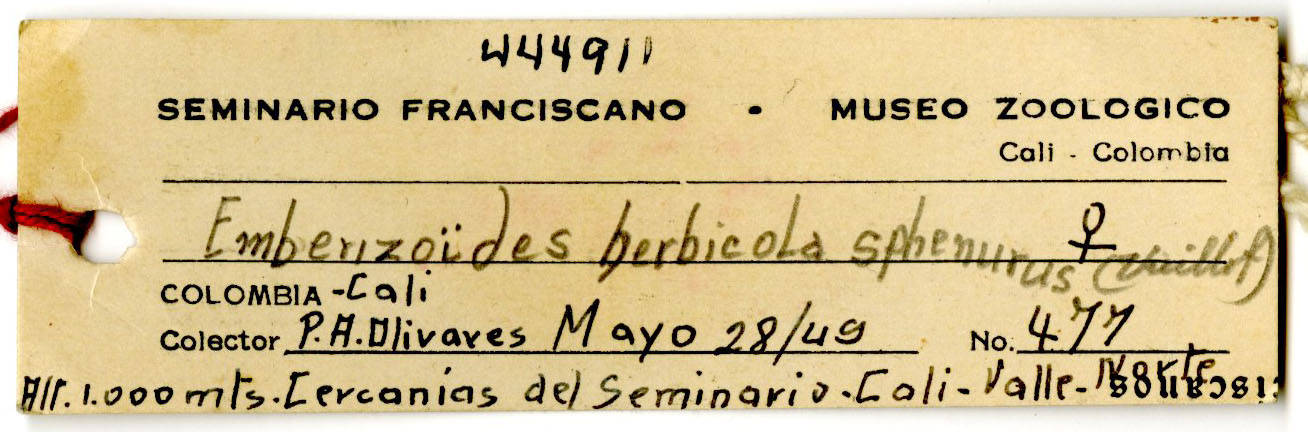 444911
SEMINARIO FRANCISCANO • MUSEO ZOOLOGICO
Cali - Colombia
Emberizoïdes herbicola sphenurus (Vieillot) ♀
COLOMBIA - Cali
Colector P.A.Olivares Mayo 28/49 No. 477
Alt. 1.000 mts. Cercanías del Seminario. Cali - Valle - Norte